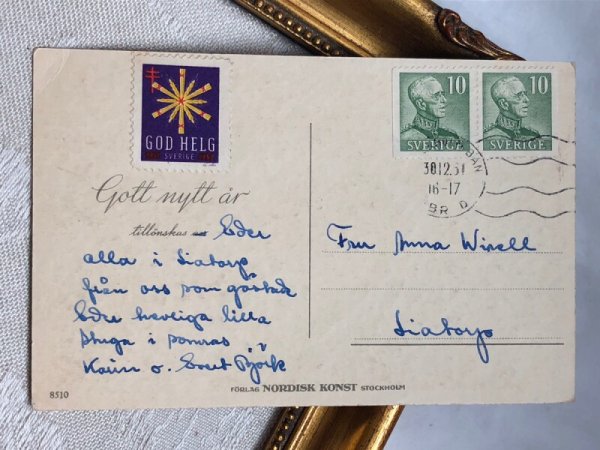 GOD HELG
SVERIGE
10
SVERIGE
10
SVERIGE
30.12.51
16-17
Gott nytt år
tillönskas Eder
alla i Liatorp
från oss som gästade
Edre hevliga lilla
stuga i somras
Karin o. Evert Björk
Fru Anna Wirell
Liatorp
8510
FÖRLAG NORDISK KONST STOCKHOLM